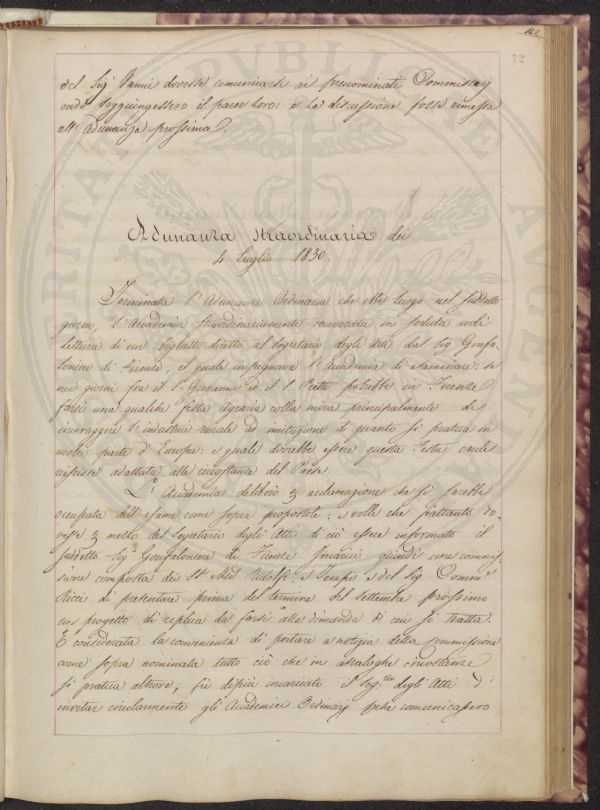 142
72
del Sig.r Vanni dovesse comunicarsi ai prenominati Commissarj
onde soggiungessero il parer loro: e la discussione fosse rimessa
all'Adunanza prossima.
Adunanza straordinaria dei
4 Luglio 1830.
Terminata l'Adunanza Ordinaria che ebbe luogo nel suddetto
giorno, l'Accademia straordinariamente convocata in seduta udì
lettura di un biglietto diretto al Segretario degli Atti dal Sig. Gonfa-
loniere di Firenze, il quale impegnava l'Accademia di esaminare: se
nei giorni fra il S. Giovanni ed il S. Pietro potrebbe in Firenze
farsi una qualche festa agraria colla mira principalmente di
incoraggire l'industria rurale ad imitazione di quanto si pratica in
molte parti d'Europa: e quale dovrebbe essere questa Festa onde
riescisse adattata alle circostanze del Paese.
L'Accademia deliberò per acclamazione che si sarebbe
occupata dell'esame come sopra propostole: e volle che frattanto do-
vesse per mezzo del Segretario degli Atti di ciò essere informato il
suddetto Sig. Gonfaloniere di Firenze. Incaricò quindi una commis-
sione composta dei SS.i March. Ridolfi, e Tempi e del Sig. Comm.e
Ricci di presentare prima del termine del settembre prossimo
un progetto di replica da farsi alla dimanda di cui si tratta.
E considerata la convenienza di portare a notizia della Commissione
come sopra nominata tutto ciò che in analoghe circostanze
si pratica altrove, fù di più incaricato il Seg.rio degli Atti d'
invitar circolarmente gli Accademici Ordinarj perchè comunicassero